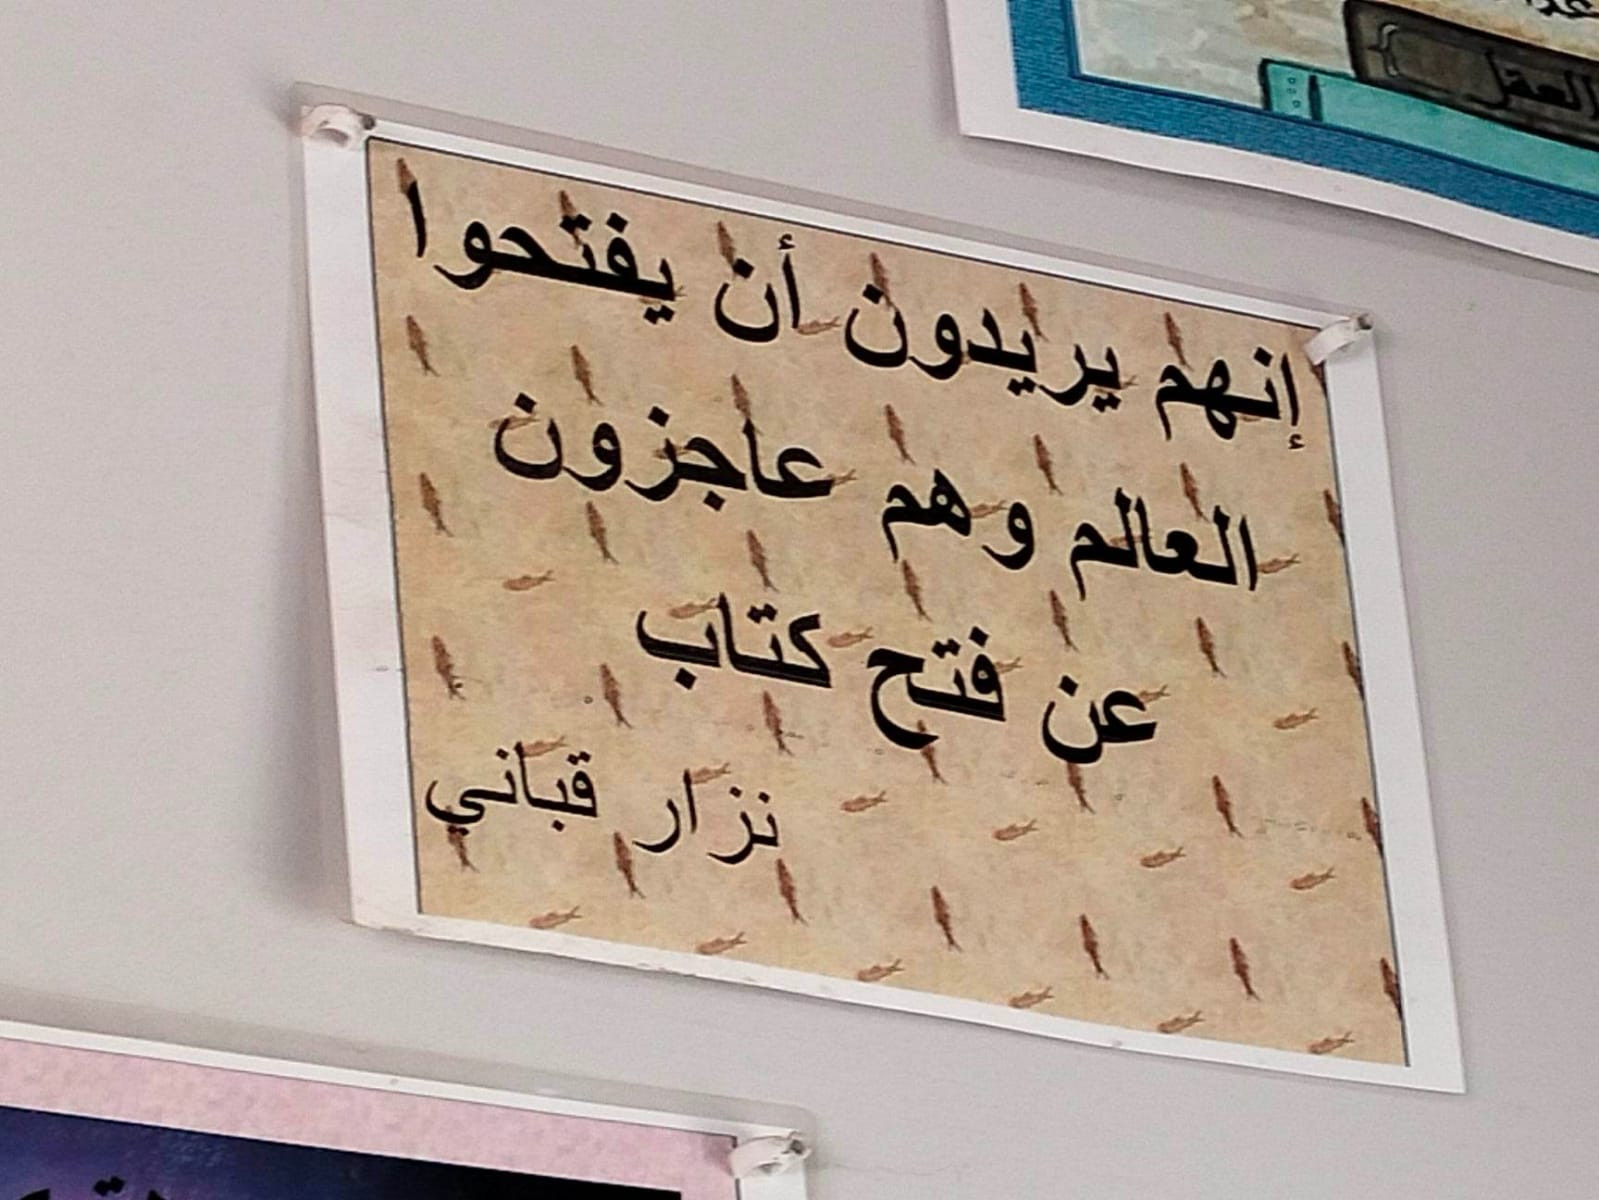 إنهم يريدون أن يفتحوا
العالم وهم عاجزون
عن فتح كتاب
نزار قباني
العقل